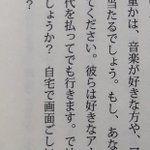 重かは、音楽が好きな方や、一
当たるでしょう。もし、あな
てください。彼らは好きなア
代を払ってでも行きます。で
しょうか？　自宅で画面ごし
？